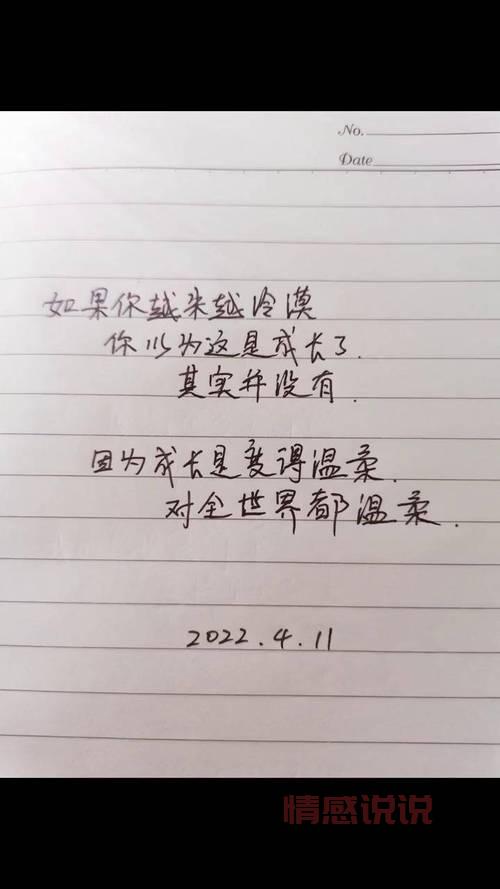 No.
Date
如果你越来越冷漠
你以为这是成长了.
其实并没有.
因为成长是变得温柔.
对全世界都温柔.
2022.4.11
情感说说